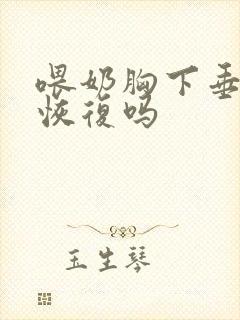 喂奶胸下垂
恢復吗
玉生琴